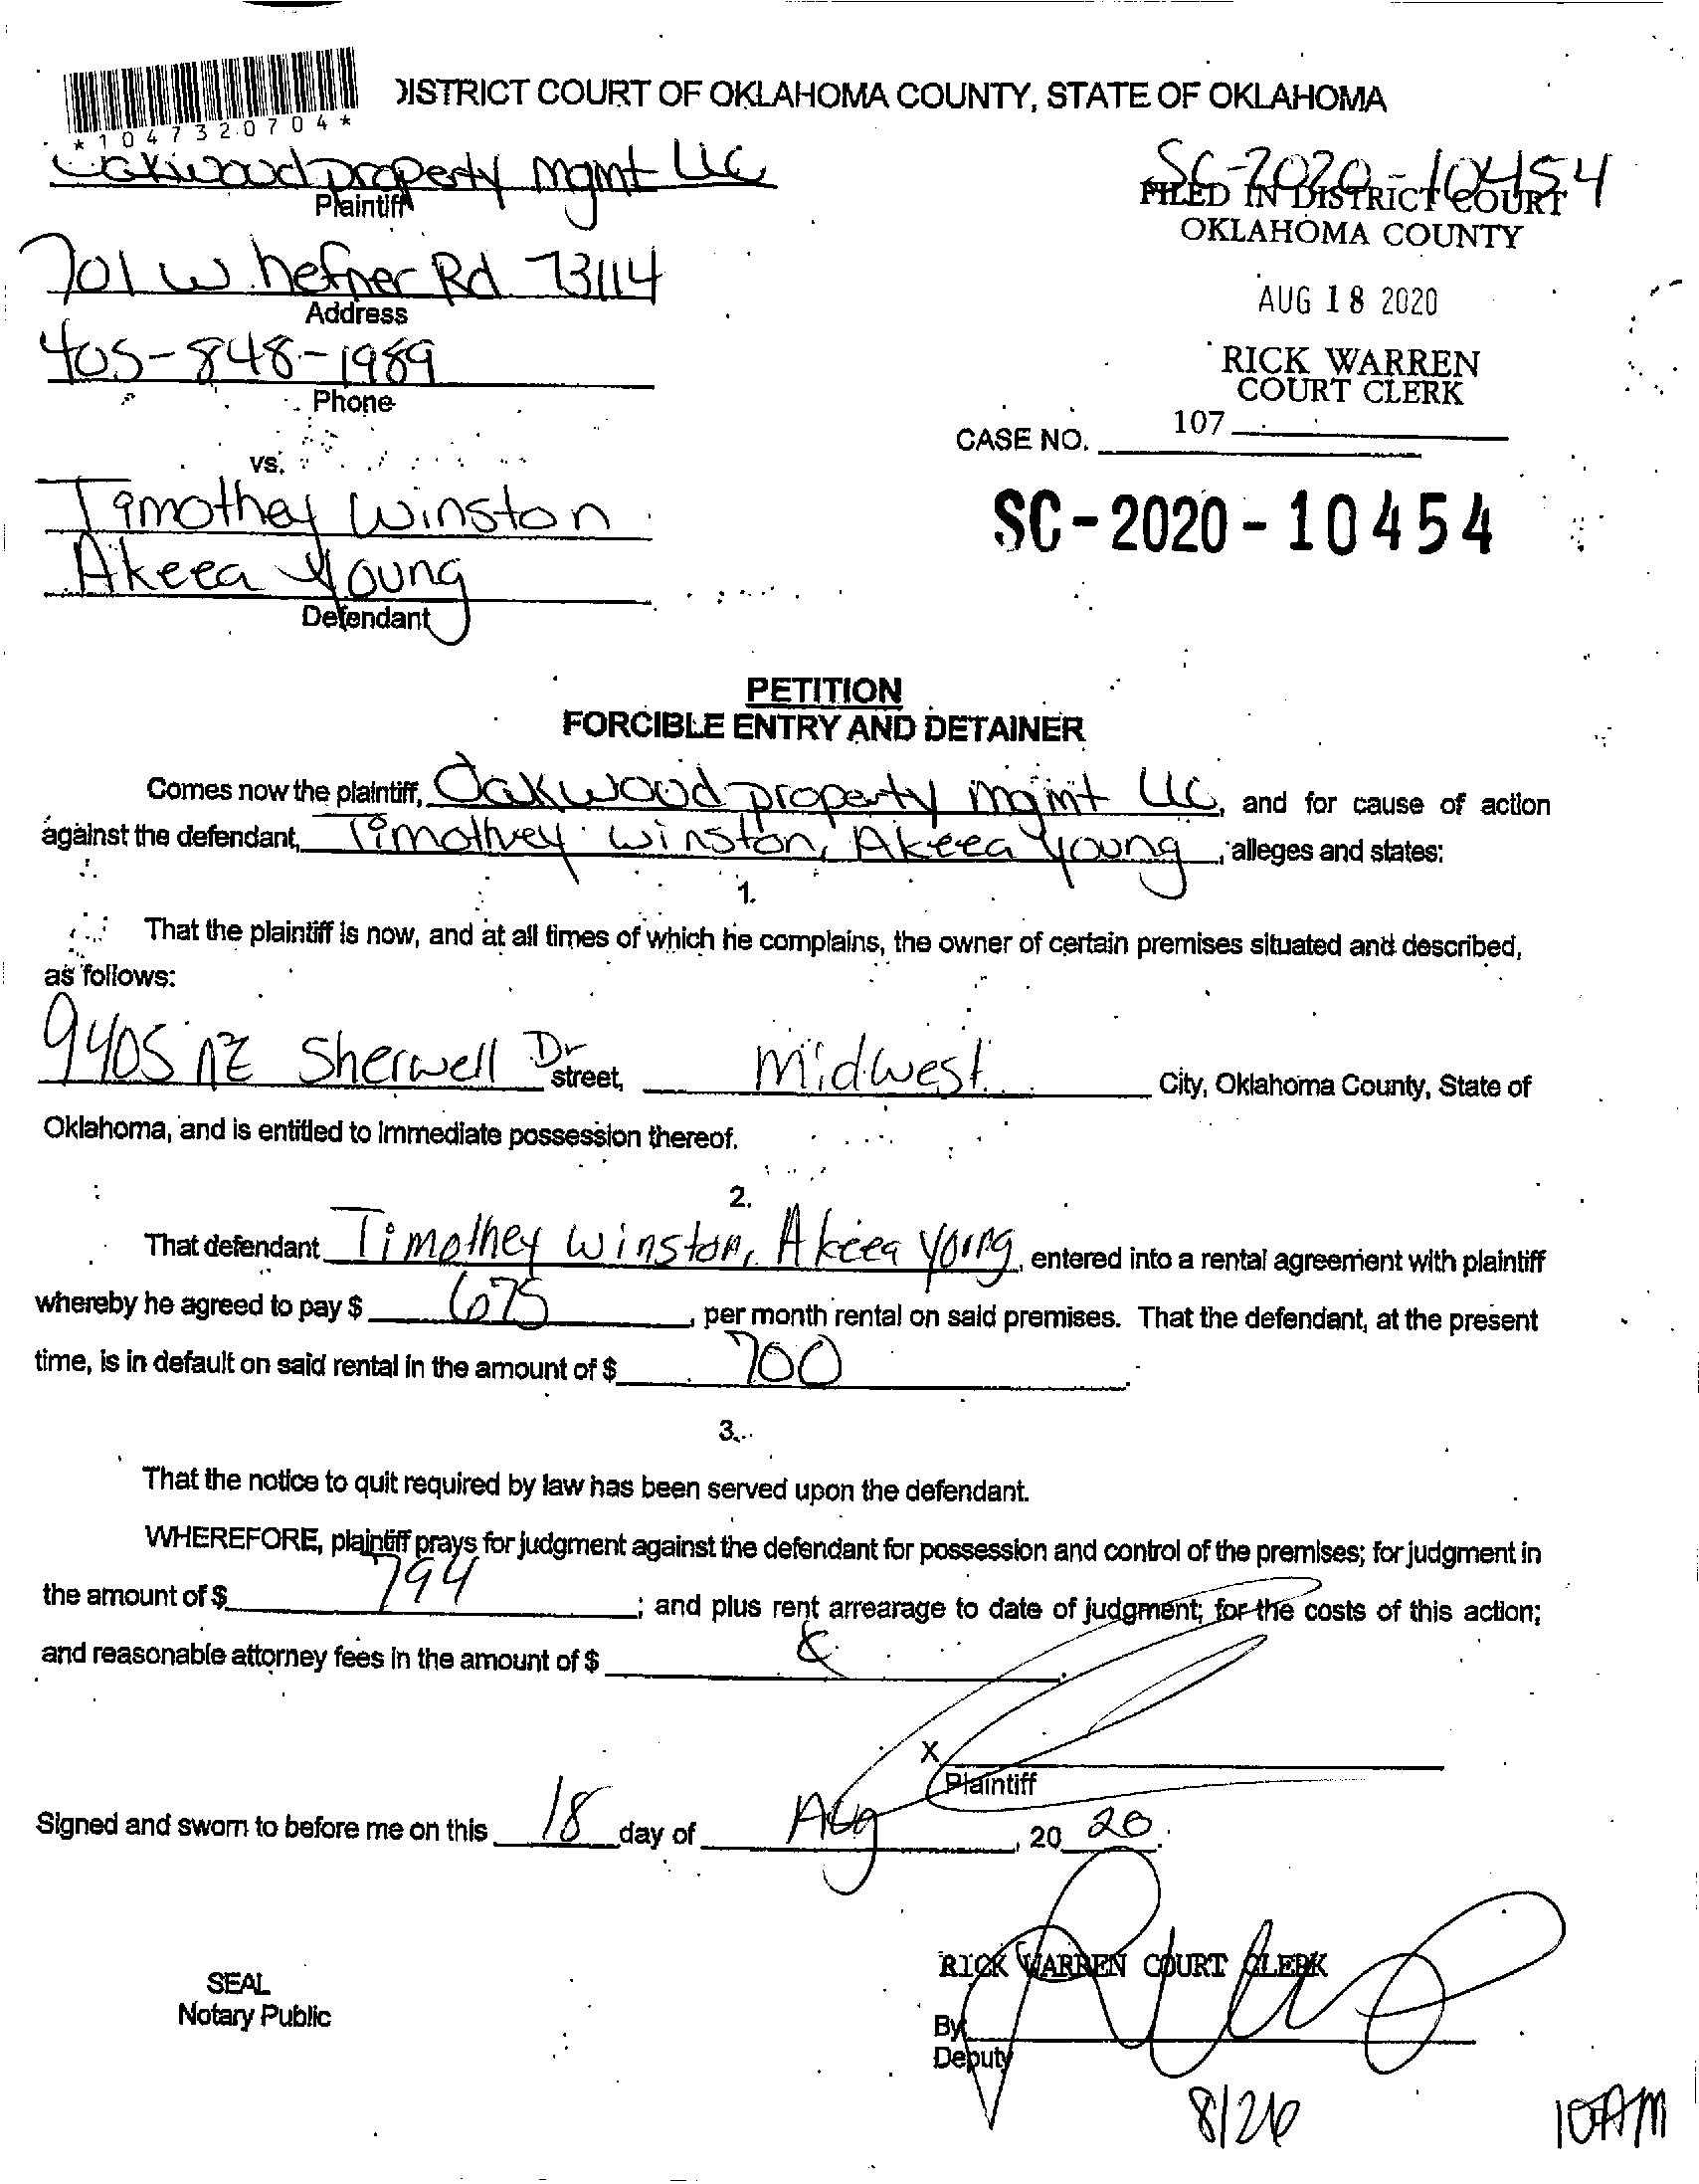 DISTRICT COURT OF OKLAHOMA COUNTY, STATE OF OKLAHOMA
*1047320704*
Oakwood property mgmt LLC
Plaintiff
SC-2020-10454
FILED IN DISTRICT COURT
OKLAHOMA COUNTY
701 W. hefner Rd 73114
Address
AUG 18 2020
405-848-1989
Phone
RICK WARREN
COURT CLERK
107
CASE NO.
vs.
Timothey Winston
SC-2020-10454
Akeea Young
Defendant
PETITION
FORCIBLE ENTRY AND DETAINER
Comes now the plaintiff, Oakwood property mgmt LLC, and for cause of action
against the defendant, Timothey Winston, Akeea Young, alleges and states:
1.
That the plaintiff is now, and at all times of which he complains, the owner of certain premises situated and described,
as follows:
9405 NE Sherwell Dr street, Midwest City, Oklahoma County, State of
Oklahoma, and is entitled to immediate possession thereof.
2.
That defendant Timothey Winston, Akeea Young, entered into a rental agreement with plaintiff
whereby he agreed to pay $ 675, per month rental on said premises. That the defendant, at the present
time, is in default on said rental in the amount of $ 700.
3.
That the notice to quit required by law has been served upon the defendant.
WHEREFORE, plaintiff prays for judgment against the defendant for possession and control of the premises; for judgment in
the amount of $ 794; and plus rent arrearage to date of judgment; for the costs of this action;
and reasonable attorney fees in the amount of $
X
Plaintiff
Signed and sworn to before me on this 18 day of Aug, 20 20.
RICK WARREN COURT CLERK
SEAL
Notary Public
By
Deputy
8/26 10AM